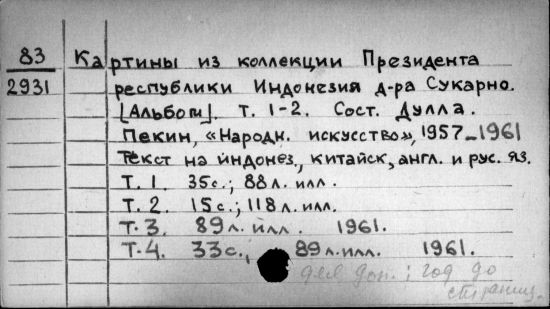 83
2931
Картины из коллекции Президента
республики Индонезия д-ра Сукарно.
[Альбом]. т. 1-2. Сост. Дулла.
Пекин, «Народн. искусство», 1957-1961
Текст на индонез., китайск, англ. и рус. яз.
Т. 1. 35с.; 88 л. илл.
Т. 2. 15с.; 118 л. илл.
Т. 3. 89 л. илл. 1961.
Т. 4. 33с., 89 л. илл. 1961.
для доп.: год до
страниц.